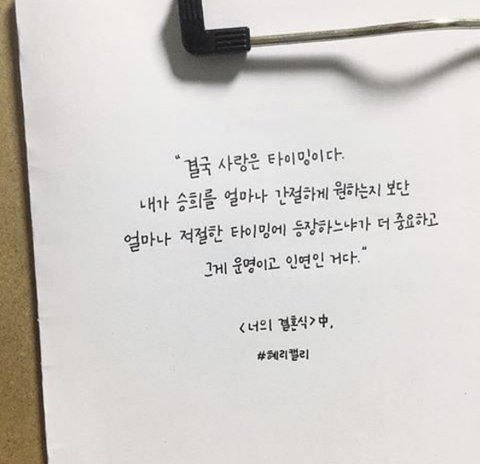 "결국 사랑은 타이밍이다.
내가 승희를 얼마나 간절하게 원하는지 보단
얼마나 적절한 타이밍에 등장하느냐가 더 중요하고
그게 운명이고 인연인 거다."
<너의 결혼식>中,
#혜리캘리